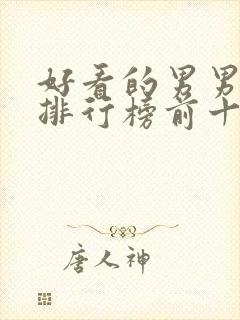 好看的男男
排行榜前十
唐人神